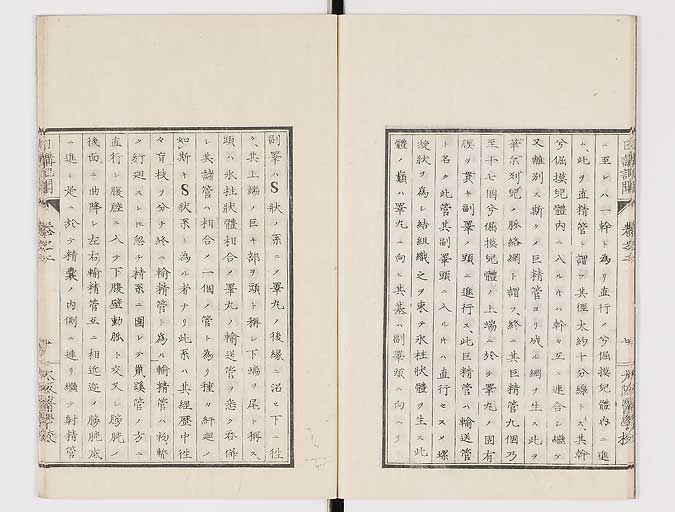 ニ至レハ一幹ト為リ直行ノ兮倔摸兒體内ニ進
ム此ヲ直精管ト謂フ其徑大約十分線トス其幹
兮倔摸兒體内ニ入ルキハ幹々互ニ連合シ繼テ
又離別ス斯ク巨精管ヨリ成ル網ヲ生ス此ヲ
ノ脉絡網ト謂フ終ニ其巨精管九個乃
至十七個兮倔摸兒體ノ上端ニ於テ睾丸ノ固有
膜ヲ貫キ副睾ノ頭ニ進行ス此巨精管ハ輸送管
ト名ク此管其副睾頭ニ入ルキハ直行セスメ螺
旋状ヲ為シ結組織之ヲ束テ氷柱状體ヲ生ス此
體ノ巓ハ睾丸ニ向ヒ其基ハ副睾頭ニ向ヘリ
副睾ハS状ノ系ニメ睾丸ノ後縁ニ沿ヒ下ニ徃
ク其上端ノ巨キ部ヲ頭ト稱シ下端ヲ尾ト稱ス
頭ハ氷柱状體相合メ睾丸ノ輸送管ヲ悉ク呑併
シ其諸管ハ相合メ一個ノ管ト為リ種々紆廻メ
如斯キS状系ト為ル者ナリ此系ハ其經歴中徃
々盲枝ヲ分チ終ニ輸精管ト為ル輸精管ハ初メ
ク紆廻スレ𪜈忽チ精系ニ圍レテ鼠蹊管ノ方ニ
直行シ腹腔ニ入テ下腹壁動脉ト交叉シ膀胱ノ
後面ニ曲降シ左右輸精管互ニ相近迩メ膀胱底
ニ進ミ是ニ於テ精囊ノ内側ニ連リ繼テ射精管
日講記聞
大阪醫學校